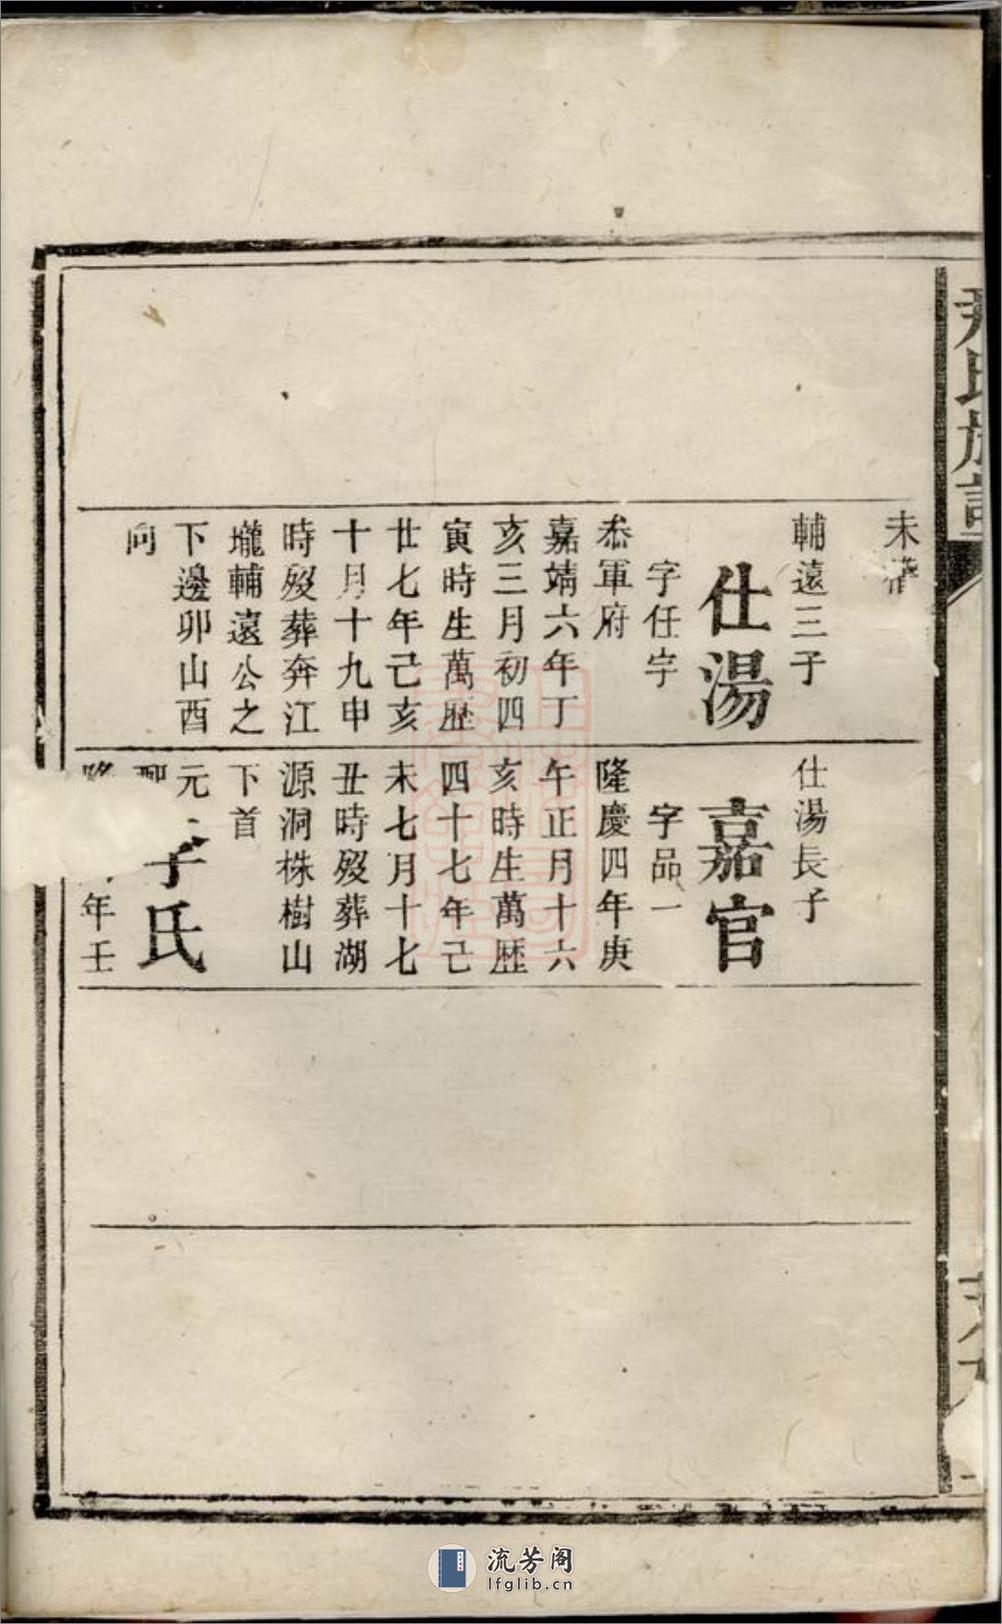 氏族譜
未
輔遠三子
仕湯
字任宇
叅軍府
嘉靖六年丁
亥三月初四
寅時生萬歷
廿七年己亥
十月十九申
時歿葬奔江
壠輔遠公之
下邊卯山酉
向
仕湯長子
嘉官
字品一
隆慶四年庚
午正月十六
亥時生萬歷
四十七年己
未七月十七
丑時歿葬湖
源洞株樹山
下首
元
氏
年壬
流芳阁
lfglib.cn